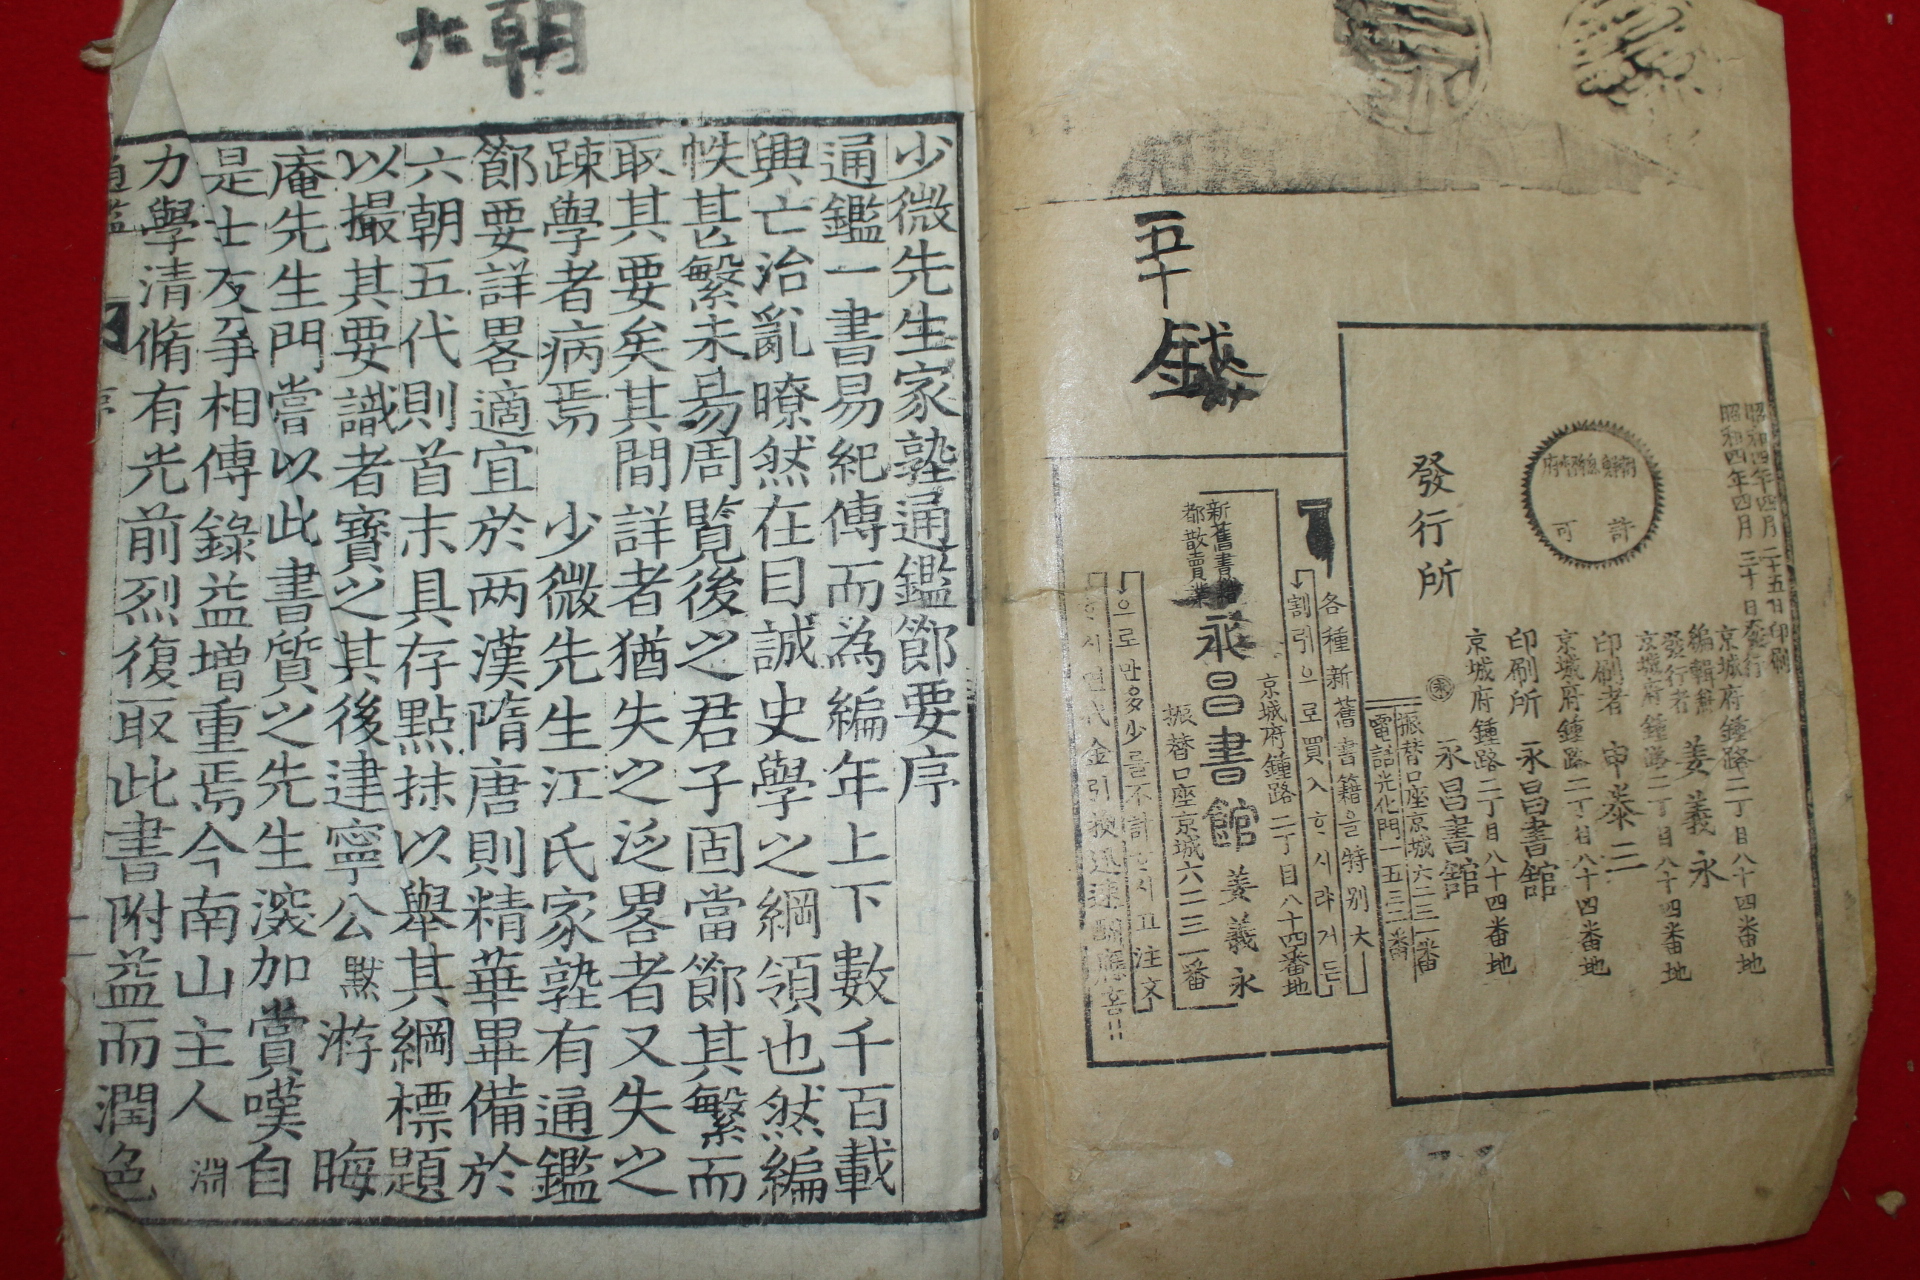 五十錢
昭和四年四月二十五日印刷
昭和四年四月三十日發行
朝鮮總督府
許可
京城府鍾路二丁目八十四番地
編輯兼
發行者 姜義永
京城府鍾路二丁目八十四番地
印刷者 申泰三
京城府鍾路二丁目八十四番地
印刷所 永昌書館
京城府鍾路二丁目八十四番地
發行所 永昌書館
振替口座京城六二三一番
電話光化門一五三二番
各種新舊書籍을特別大
割引으로買入ᄒᆞ시랴거든
京城府鍾路二丁目八十四番地
新舊書籍
都散賣業
永昌書館 姜義永
振替口座京城六二三一番
으로만多少를不計ᄒᆞ시고注文
朝
少微先生家塾通鑑節要序
通鑑一書易紀傳而為編年上下數千百載
興亡治亂瞭然在目誠史學之綱領也然編
帙甚繁未易周覽後之君子固當節其繁而
取其要矣其間詳者猶失之泛畧者又失之
踈學者病焉 少微先生江氏家塾有通鑑
節要詳畧適宜於两漢隋唐則精華畢備於
六朝五代則首末具存點抹以舉其綱標題
以撮其要識者寶之其後建寧公默游 晦
庵先生門嘗以此書質之先生深加賞嘆自
是士友爭相傳錄益增重焉今南山主人 淵
力學清脩有光前烈復取此書附益而潤色